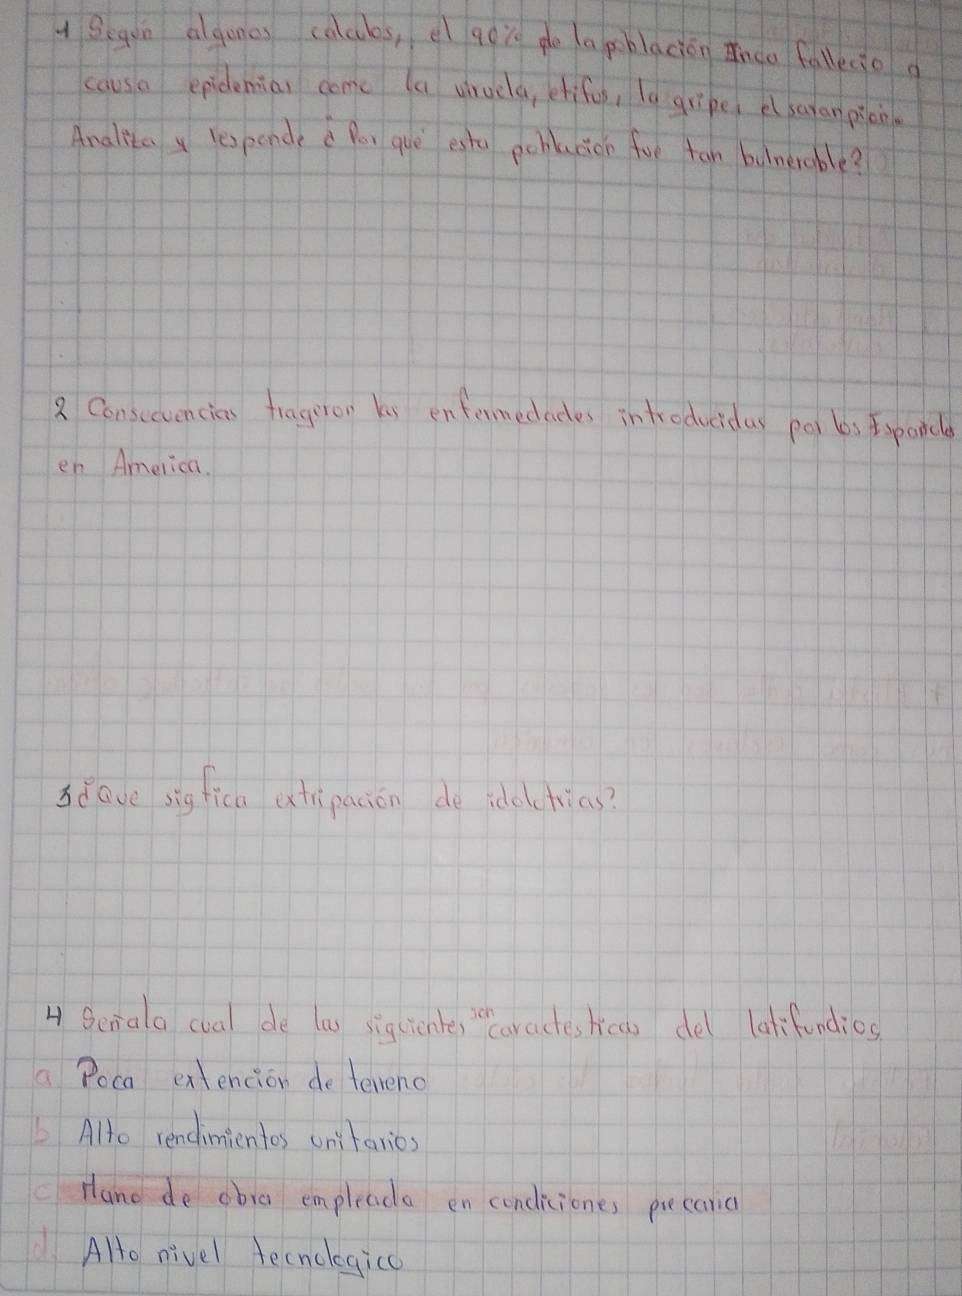 1 Según algunos calculos, el 90% de la población Inca fallecio a
causa epidemias como la viruela, etifus, la gripe, el sarampión.
Analiza y responde ¿ Por qué esta población fue tan bulnerable?
2 Consecuencias trageron las enfermedades introducidas por los Españoles
en America.
3 ¿Que sigfica extripación de idolotrias?
4 Señala cual de las siguientes son caractesticas del latifundios
a Poca extención de terreno
b Alto rendimientos unitarios
c Mano de obra empleada en condiciones precaria
d. Alto nivel tecnologico